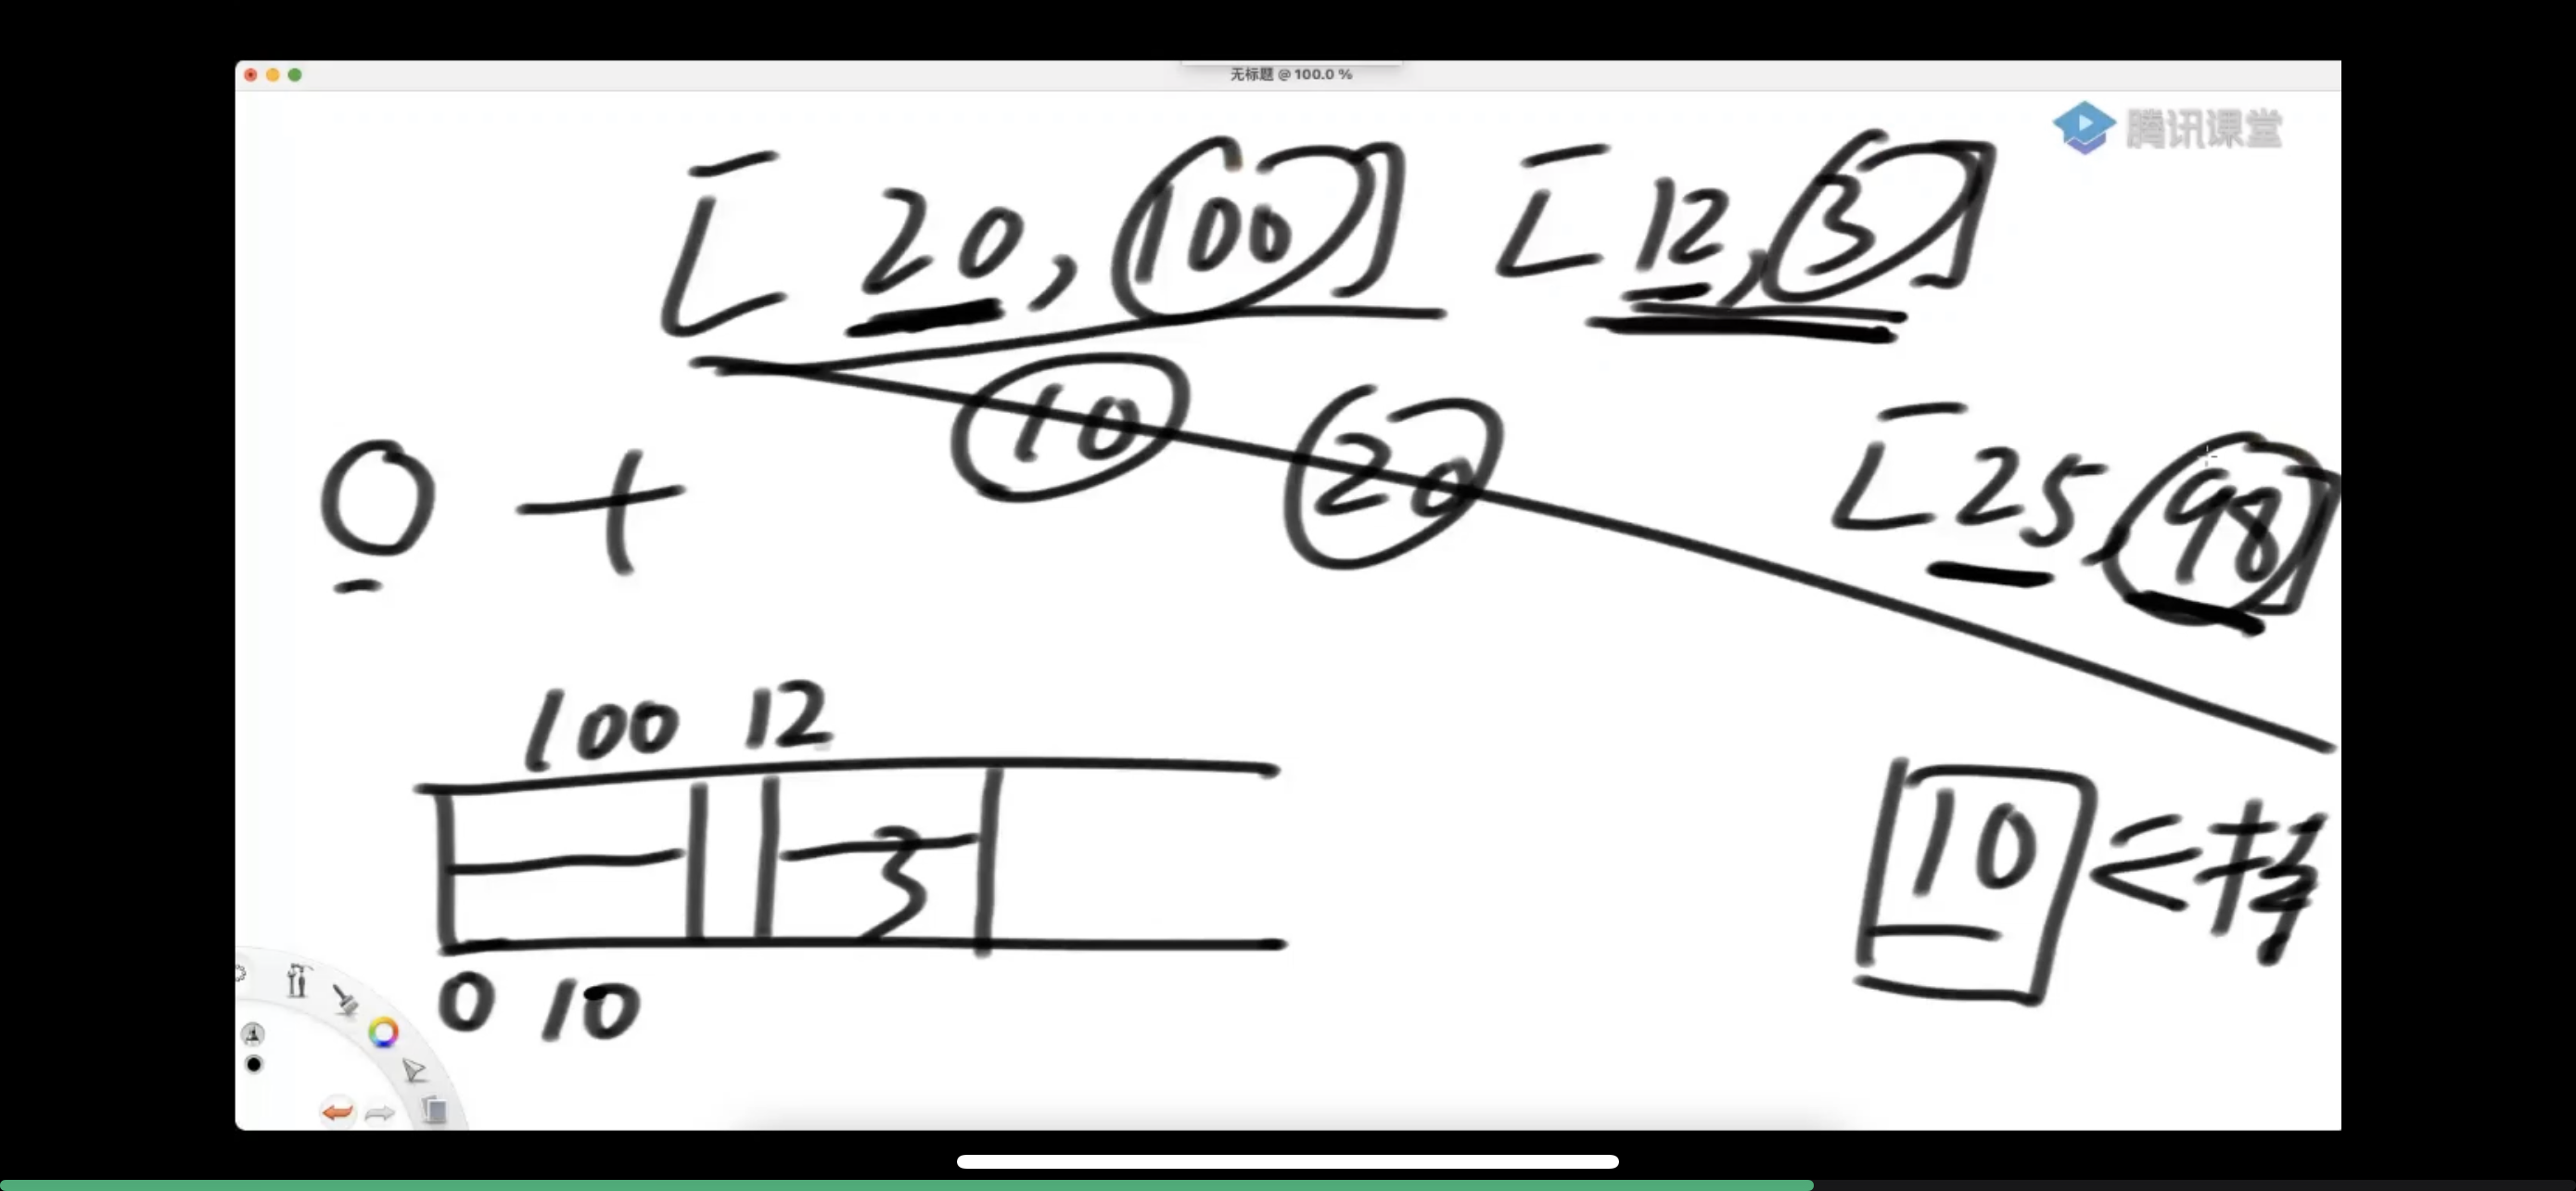 无标题 @ 100.0 %
腾讯课堂
[ 20, 100] [12, 3]
10 20
0 +
[25, 98]
100 12
3
10
0 10